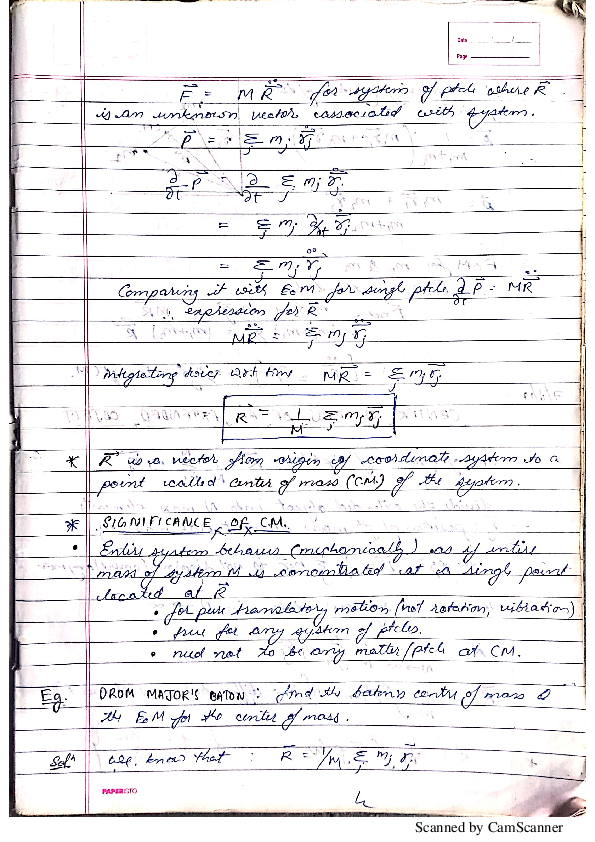 Date
Page
F⃗ = M R⃗̈ for system of ptcle where R⃗
is an unknown vector associated with system.
P⃗ = Σⱼ mⱼ r⃗̇ⱼ
∂/∂t P⃗ = ∂/∂t Σⱼ mⱼ r⃗̇ⱼ
= Σⱼ mⱼ ∂/∂t r⃗̇ⱼ
= Σⱼ mⱼ r⃗̈ⱼ
Comparing it with EoM for single ptcle, ∂/∂t P⃗ = M R⃗̈
∴ expression for R⃗
M R⃗̈ = Σⱼ mⱼ r⃗̈ⱼ
Integrating twice wrt time M R⃗ = Σⱼ mⱼ r⃗ⱼ
R⃗ = 1/M Σⱼ mⱼ r⃗ⱼ
* R⃗ is a vector from origin of coordinate system to a
point called center of mass (C.M.) of the system.
* SIGNIFICANCE OF C.M.
• Entire system behaves (mechanically) as if entire
mass of system M is concentrated at a single point
located at R⃗
• for pure translatory motion (not rotation, vibration)
• true for any system of ptcles.
• need not to be any matter/ptcle at CM.
Eg. DROM MAJOR'S BATON : find the baton's centre of mass &
the EoM for the center of mass.
Solⁿ We know that : R⃗ = 1/M Σⱼ mⱼ r⃗ⱼ
PAPERISTO
Scanned by CamScanner